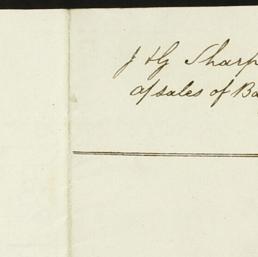 J & G Sharp
a/sales of Ba